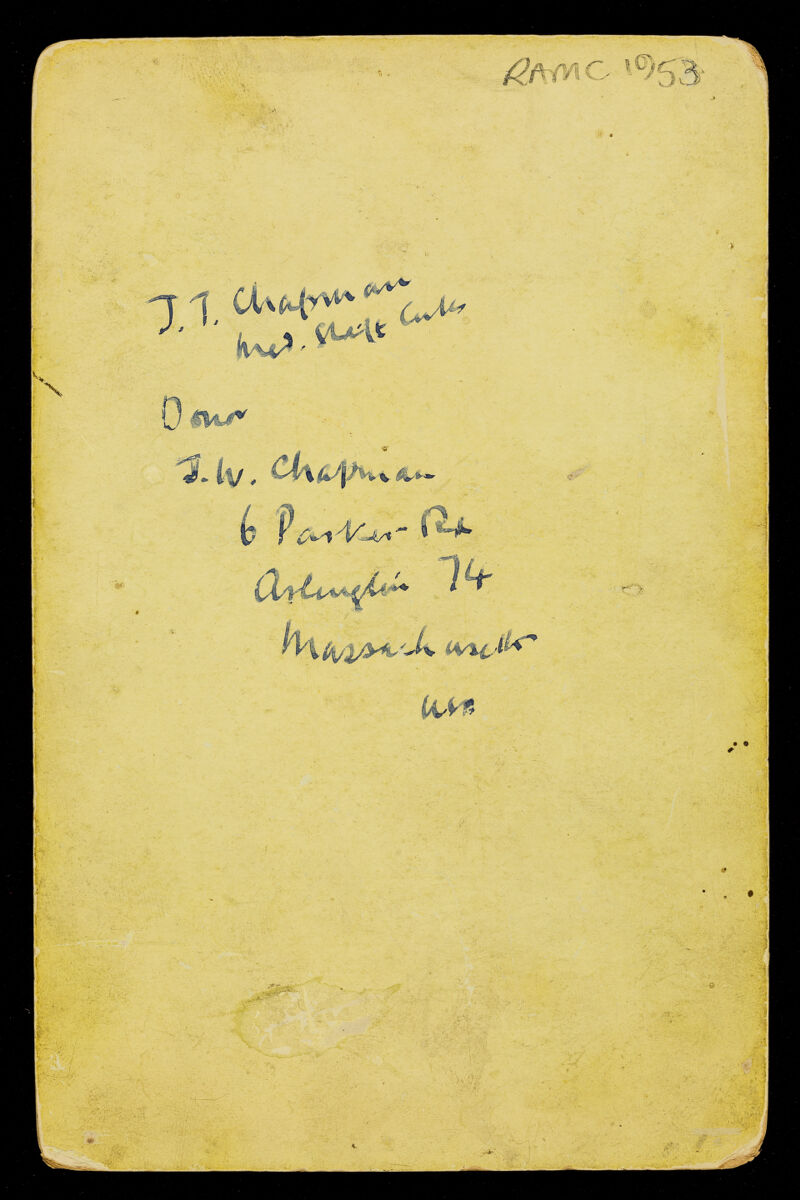 RAMC 1953
J. T. Chapman
Med. Staff Corps
Donor
J. W. Chapman
6 Parker Rd
Arlington 74
Massachusetts
USA